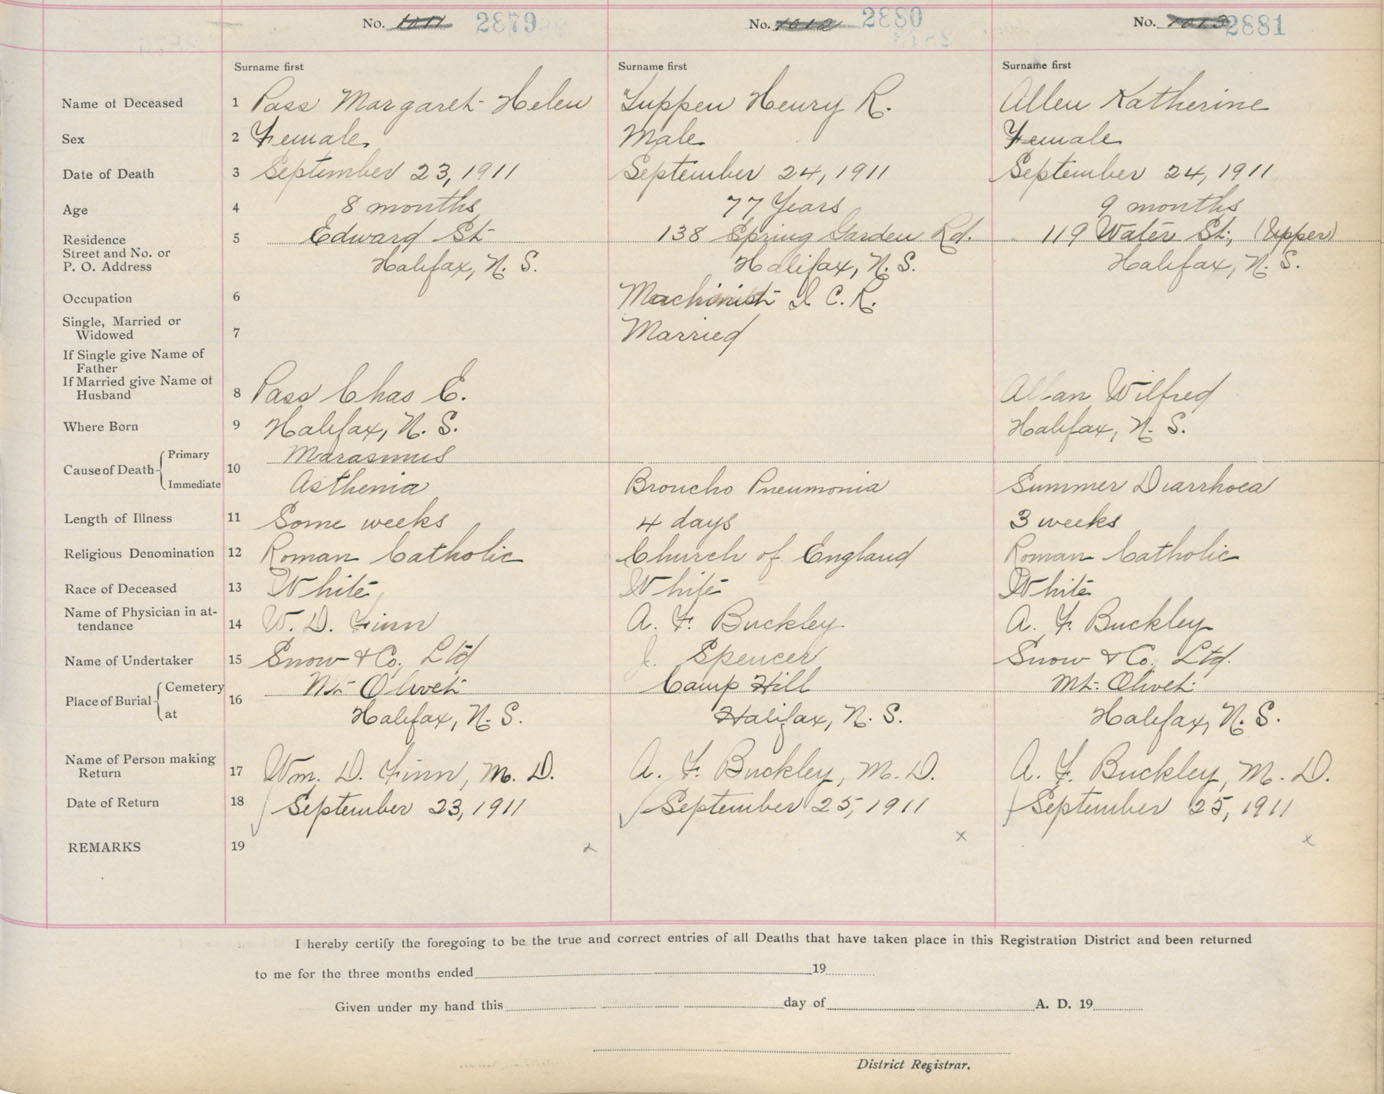 No. 1011 2879 No. 1012 2880 No. 1013 2881
Surname first Surname first Surname first
Name of Deceased 1 Pass Margaret Helen Tuppen Henry R. Allen Katherine
Sex 2 Female Male Female
Date of Death 3 September 23, 1911 September 24, 1911 September 24, 1911
Age 4 8 months 77 Years 9 months
Residence 5 Edward St 138 Spring Garden Rd. 119 Water St., (Upper)
Street and No. or
P. O. Address Halifax, N. S. Halifax, N. S. Halifax, N. S.
Occupation 6 Machinist I. C. R.
Single, Married or
Widowed 7 Married
If Single give Name of
Father
If Married give Name of
Husband 8 Pass Chas E. Allan Wilfred
Where Born 9 Halifax, N. S. Halifax, N. S.
Cause of Death 10 Primary Marasmus
Immediate Asthenia Broncho Pneumonia Summer Diarrhoea
Length of Illness 11 Some weeks 4 days 3 weeks
Religious Denomination 12 Roman Catholic Church of England Roman Catholic
Race of Deceased 13 White White White
Name of Physician in at-
tendance 14 W. D. Finn A. F. Buckley A. F. Buckley
Name of Undertaker 15 Snow & Co. Ltd J. Spencer Snow & Co. Ltd.
Place of Burial 16 Cemetery Mt Olivet Camp Hill Mt. Olivet
at Halifax, N. S. Halifax, N. S. Halifax, N. S.
Name of Person making
Return 17 Wm. D. Finn, M. D. A. F. Buckley, M. D. A. F. Buckley, M. D.
Date of Return 18 September 23, 1911 September 25, 1911 September 25, 1911
REMARKS 19 x x x
I hereby certify the foregoing to be the true and correct entries of all Deaths that have taken place in this Registration District and been returned
to me for the three months ended 19
Given under my hand this day of A. D. 19
District Registrar.